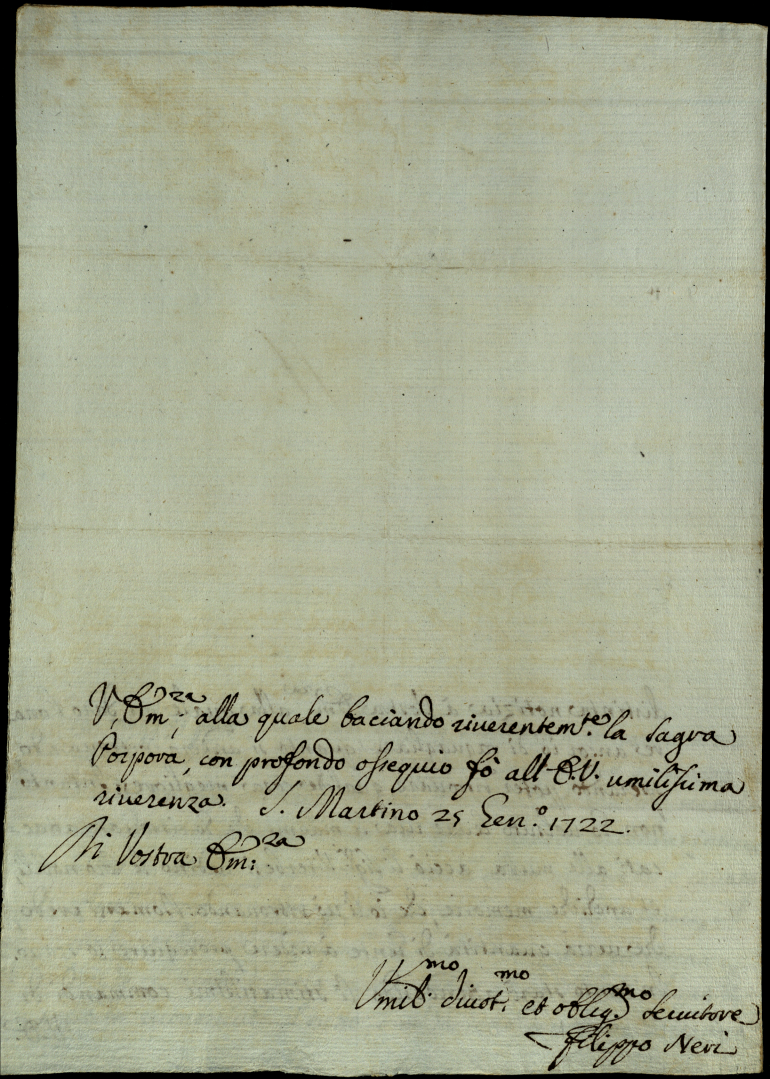 V, Em:za alla quale baciando riverentemte. la Sagra
Porpora, con profondo ossequio fò all'E.V. umilissima
riverenza. S. Martino 25 Gen.o 1722.
Di Vostra Em:za
Vmil.mo divot.mo et obblig.mo Servitore
Filippo Neri